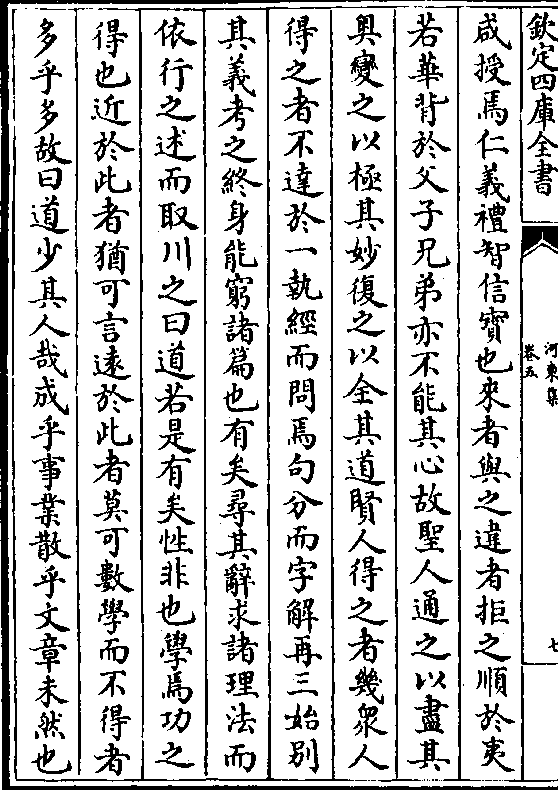 欽定四庫全書
河東集
卷五
七
咸授焉仁義禮智信寶也來者與之違者拒之順於夷
若華背於父子兄弟亦不能其心故聖人通之以盡其
奥變之以極其妙復之以全其道賢人得之者幾衆人
得之者不達於一執經而問焉句分而字解再三始别
其義考之終身能窮諸篇也有矣尋其辭求諸理法而
依行之述而取川之曰道若是有矣性非也學焉功之
得也近於此者猶可言遠於此者莫可數學而不得者
多乎多故曰道少其人哉成乎事業散乎文章未然也